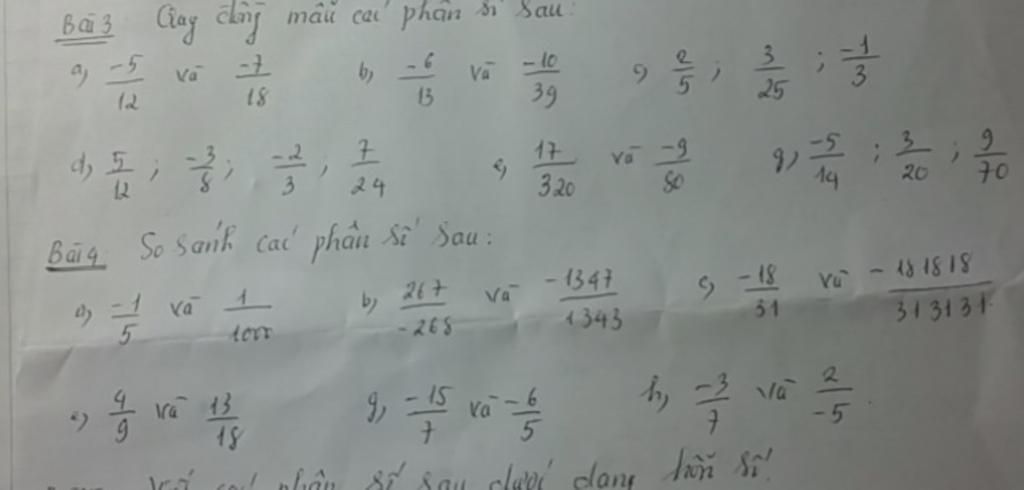 Bài 3 Quy đồng mẫu các phân số sau:
a, -5/12 và -7/18 b, -6/13 và -10/39 c, 2/5 ; 3/25 ; -1/3
d, 5/12 ; -3/8 ; -2/3 ; 7/24 e, 17/320 và -9/80 g, -5/14 ; 3/20 ; 9/70
Bài 4 So sánh các phân số sau:
a, -1/5 và 1/1000 b, 267/-268 và -1347/1343 c, -18/31 và -181818/313131
e, 4/9 và 13/18 g, -15/7 và -6/5 h, -3/7 và 2/-5
các phân số sau dưới dạng hỗn số!